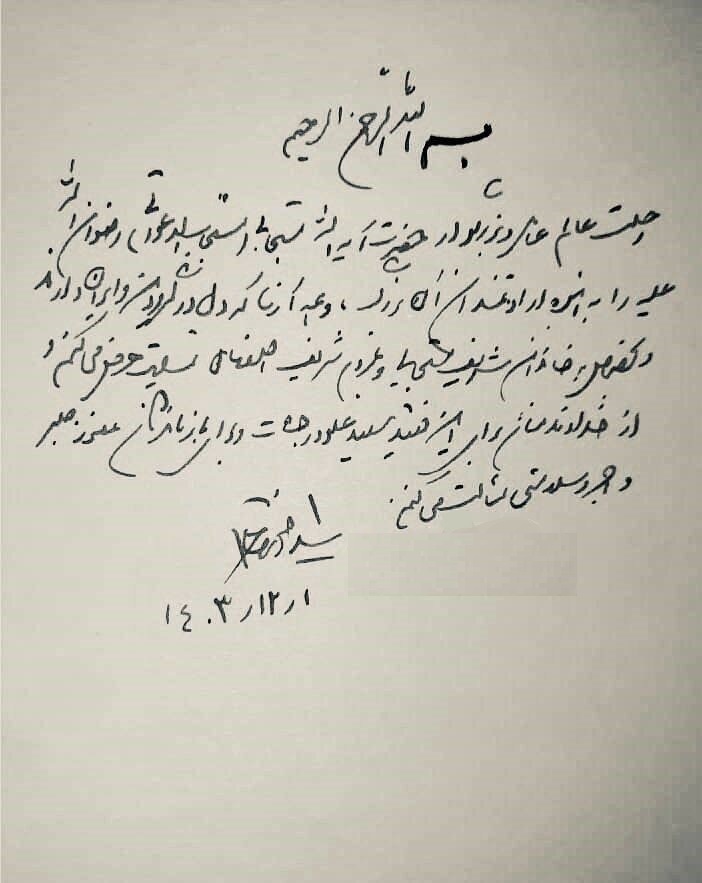 بسم الله الرحمن الرحیم
رحلت عالم عامل و بزرگوار حضرت آیه الله شب‌خیز (مستجاب الدعواتی) رضوان الله
علیه را به انبوه ارادتمندان آن بزرگ، و همه آزنا که دل در گرو دین و ایران دارند
و بخصوص به خاندان شریف و مردم شریف اصفهان تسلیت عرض می‌کنم و
از خداوند منان برای این فقید سعید علو درجات و برای بازماندگان معزز صبر
و اجر و سلامتی مسئلت می‌کنم.
سید محمد خاتمی
۱۴۰۳/۱۲/۱